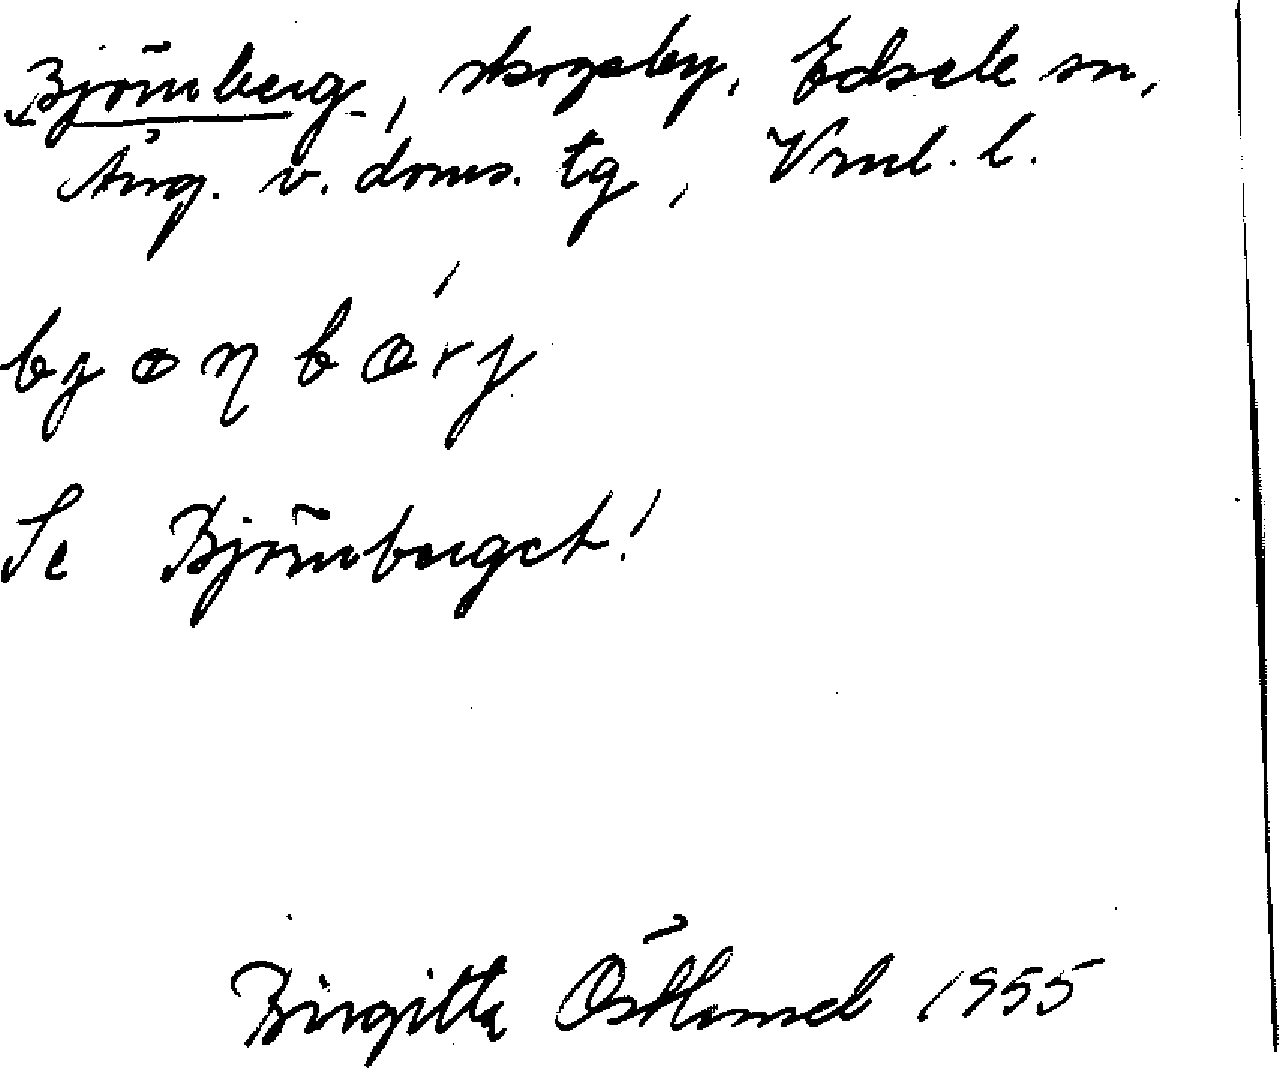 Björnberg, skogsby, Edsele sn,
Ång. v. doms. tg, Vrnl. l.
bjɵɳbærj
Se Björnberget!
Birgitta Östlund 1955